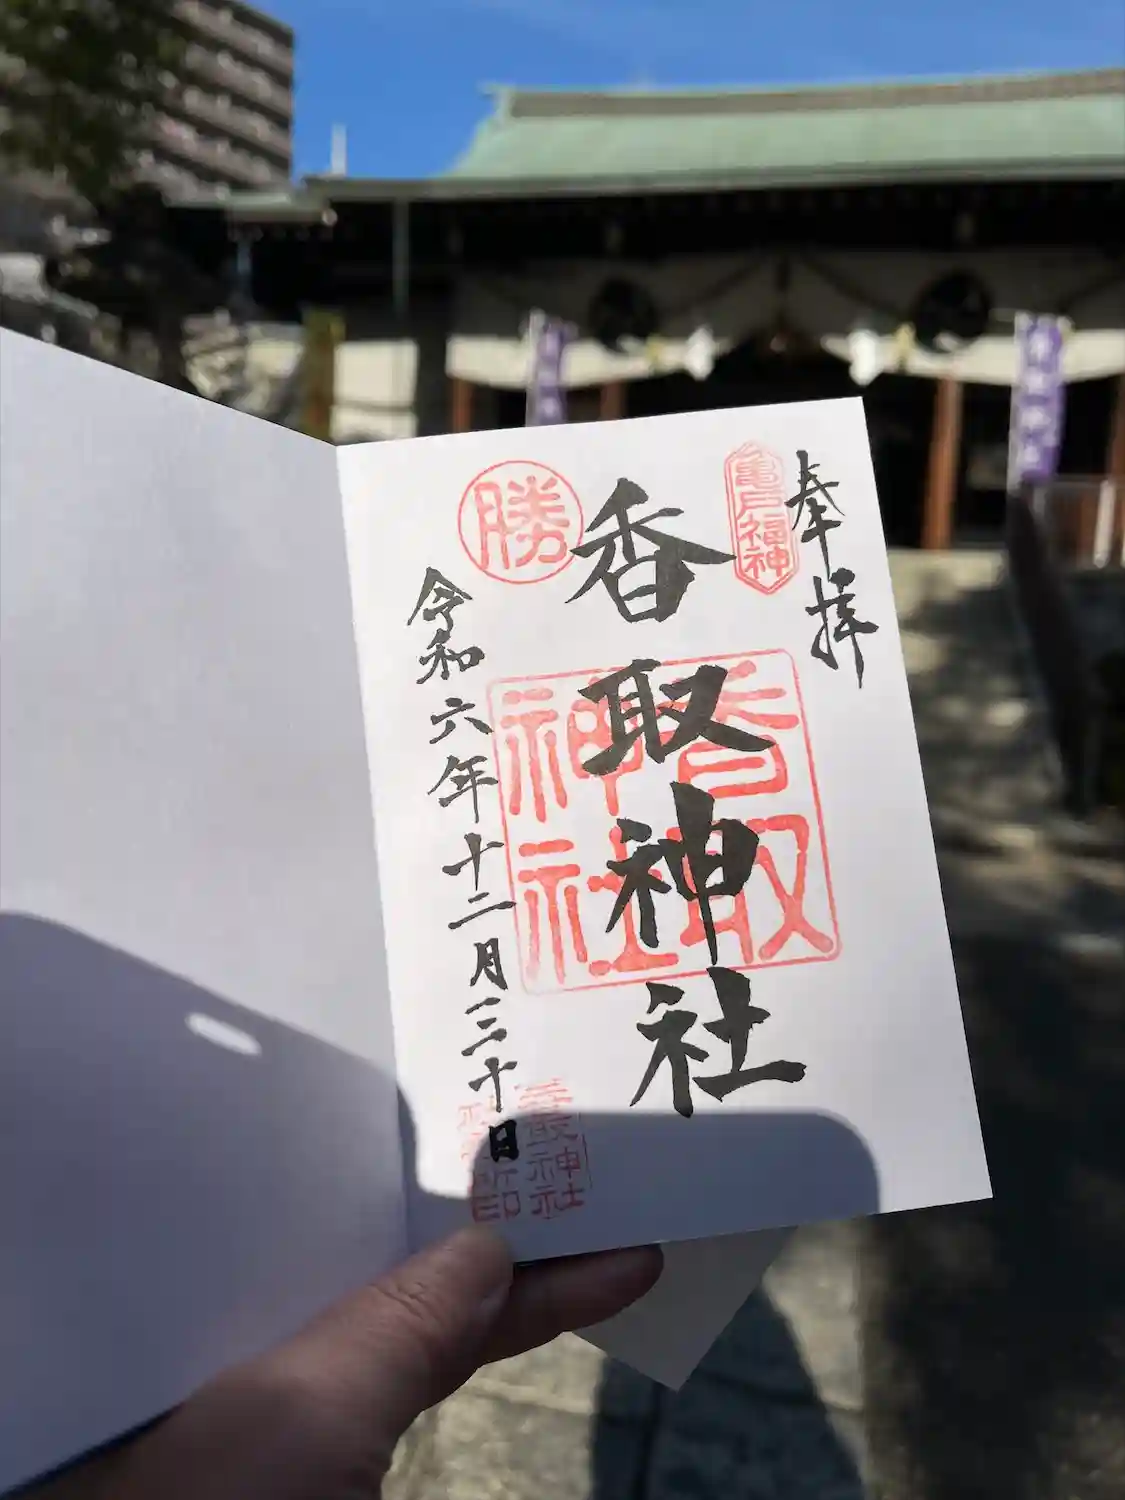 奉拝
亀戸福神
香取神社
香取
神社
勝
令和六年十二月三十日
香取神社